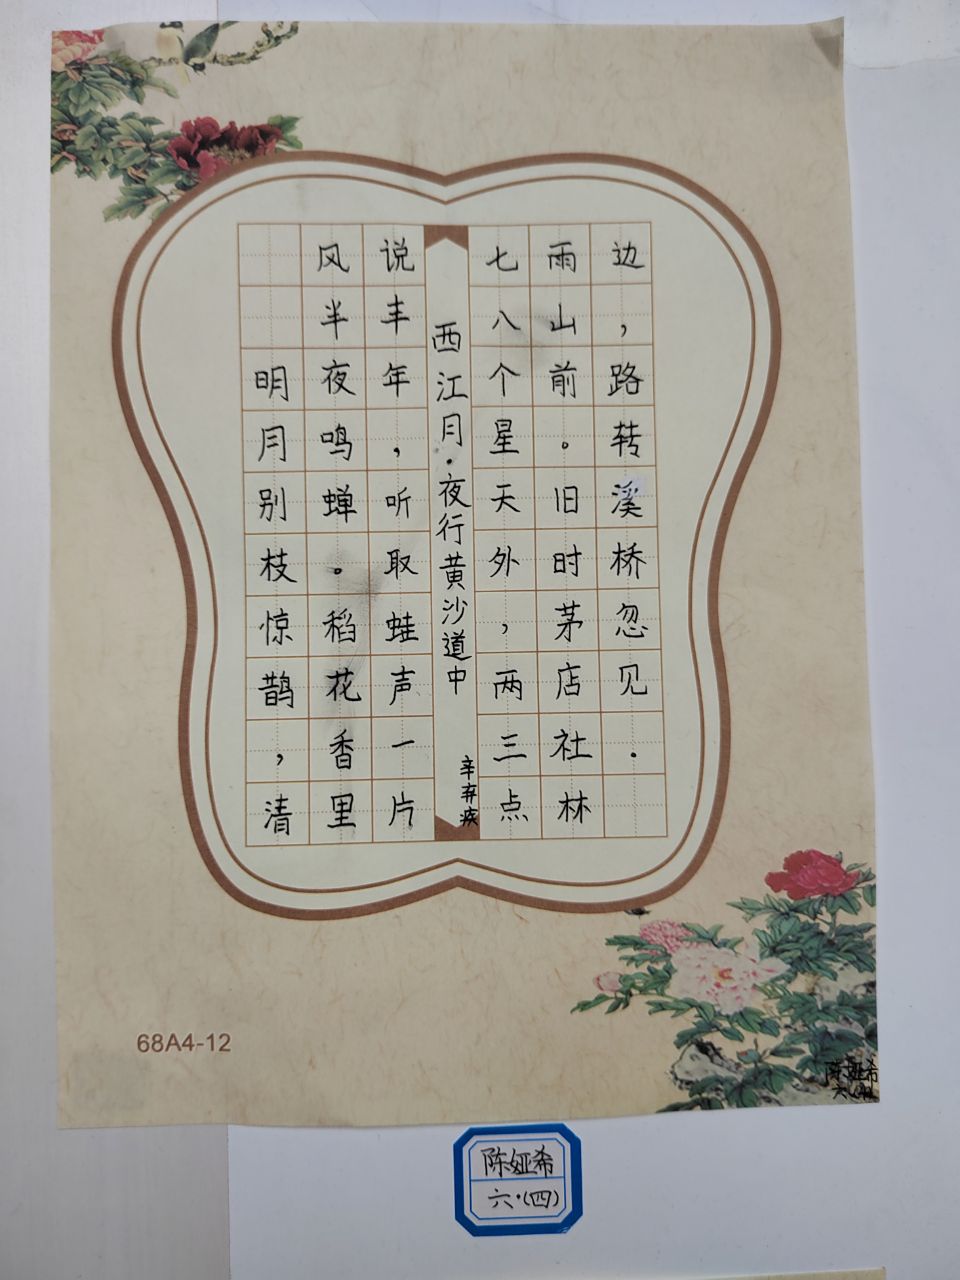 明月别枝惊鹊，清
风半夜鸣蝉。稻花香里
说丰年，听取蛙声一片
西江月·夜行黄沙道中
辛弃疾
七八个星天外，两三点
雨山前。旧时茅店社林
边，路转溪桥忽见.
68A4-12
陈娅希
陈娅希
六·(四)